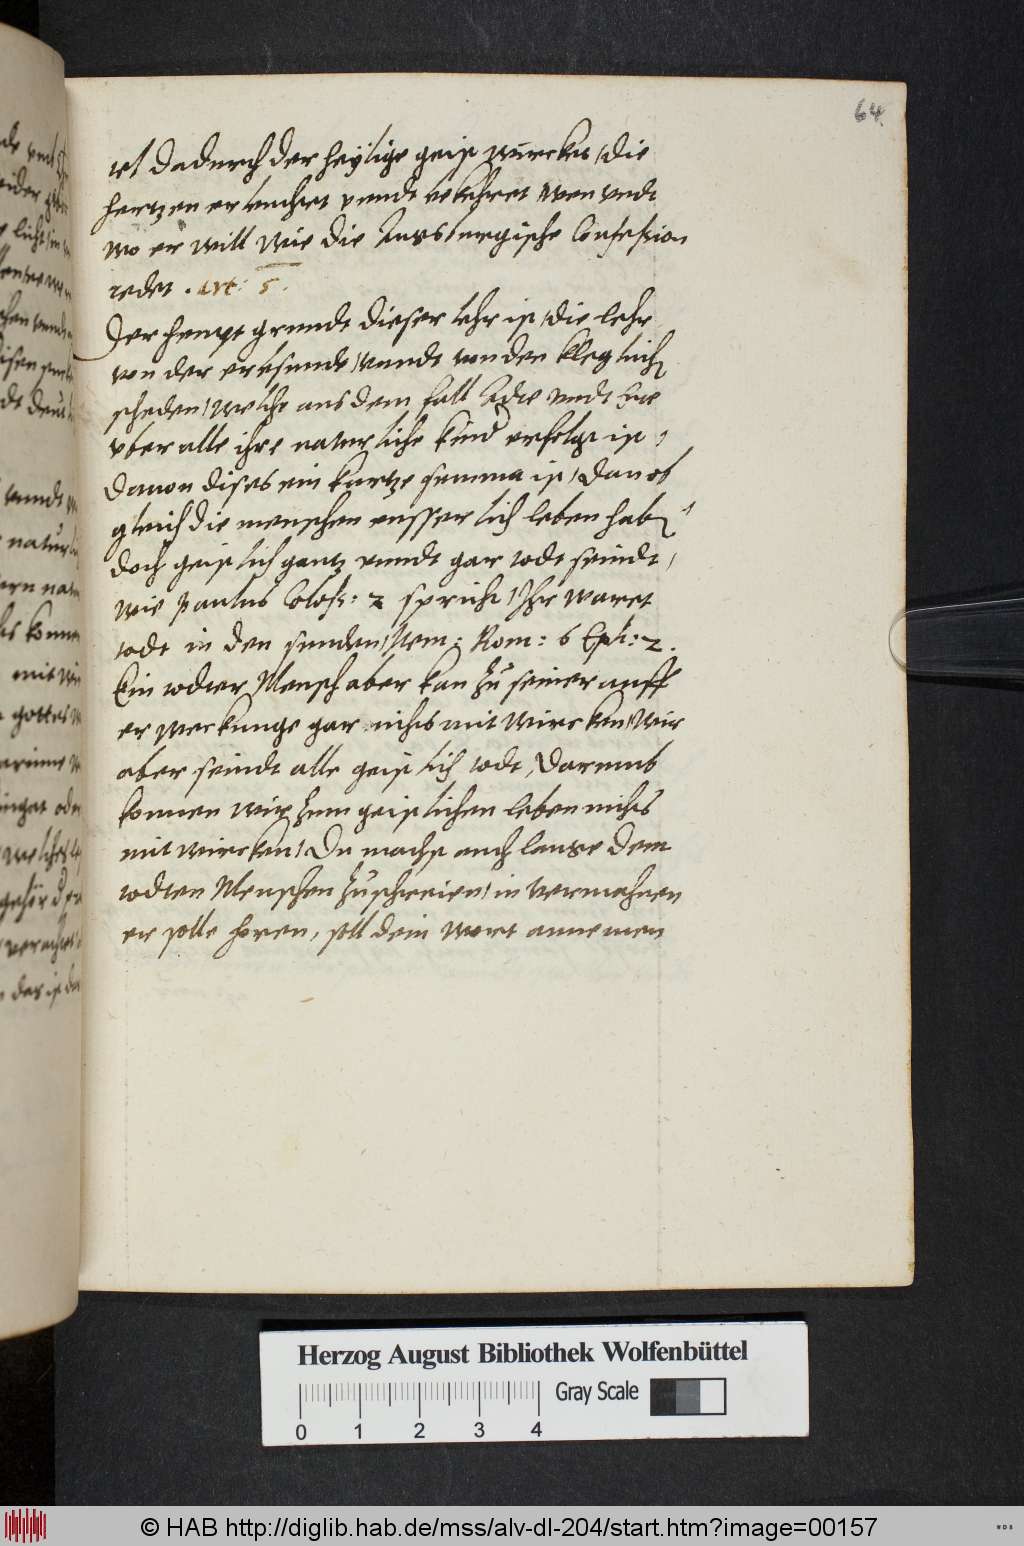 64.
ist dadurch der heylige geist wurcket, die
hertzen erleuchtet vnndt bekehret wen vndt
wo er will wie die Augsburgische Confession
redet. Art: 5.
Der heupt grundt dieser lehr ist, die lehr
von der erbsunde, vnndt von den kleglich
scheden, welche aus dem fall Adae vndt Euae
vber alle ihre naturliche kind erfolgt ist,
dauon dises ein kurtze summa ist, dan ob
gleich die menschen eusserlich leben hab
doch geistlich gantz vnndt gar todt seindt,
wie Paulus Coloss: 2 spricht, Ihr waret
todt in den sunden, Item: Rom: 6 Eph: 2.
Ein todter Mensch aber kan zu seiner auff
erweckunge gar nichts mit wircken, wir
aber seindt alle geistlich todt, Darumb
konnen wir zum geistlichen leben nichts
mit wircken, Du machst auch lange dem
todten Menschen zuschreien, in vermahnen
er solle horen, soll dein wort annemen
Herzog August Bibliothek Wolfenbüttel
Gray Scale
0 1 2 3 4
© HAB http://diglib.hab.de/mss/alv-dl-204/start.htm?image=00157